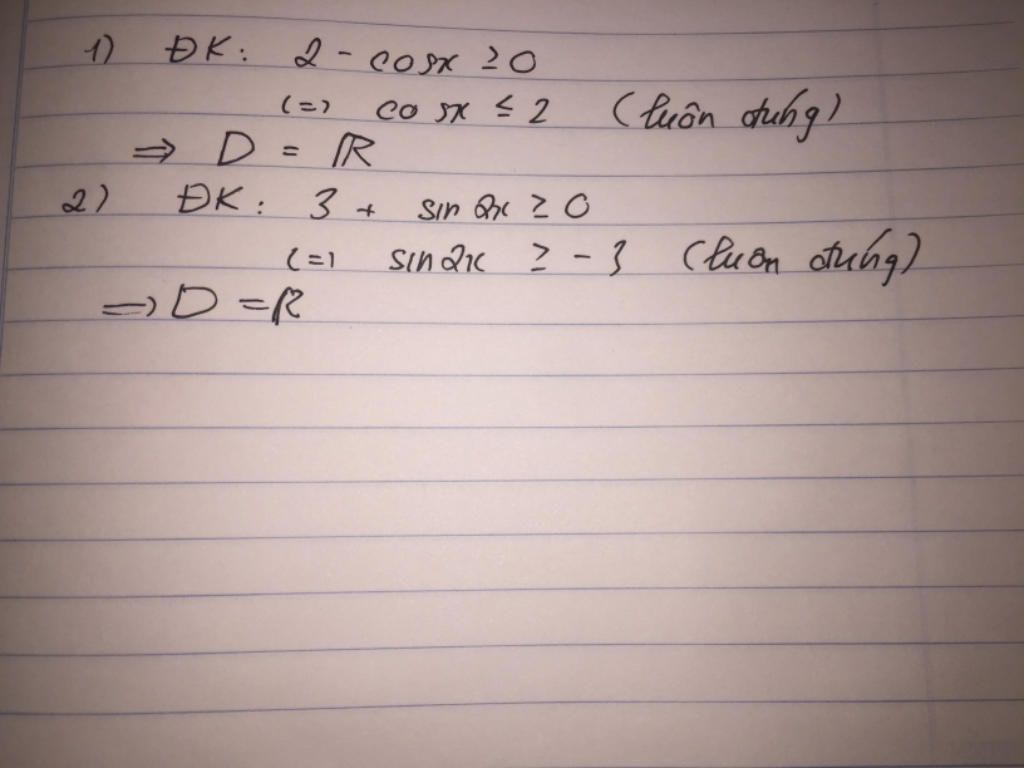 1) ĐK: 2 - cosx ≥ 0
(=) cosx ≤ 2 (luôn đúng)
⇒ D = ℝ
2) ĐK: 3 + sin 2x ≥ 0
(=) sin2x ≥ -3 (luôn đúng)
⇒ D = ℝ